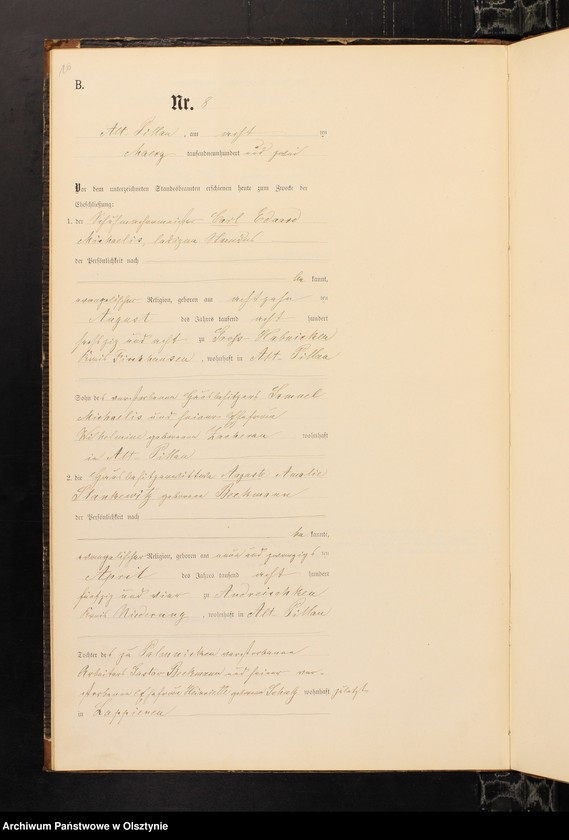 B.
Nr. 8
Alt-Pillau, am acht ten
März tausendneunhundert und zwei
Vor dem unterzeichneten Standesbeamten erschienen heute zum Zwecke der
Eheschließung:
1. der Schuhmachermeister Carl Eduard
Michaelis, ledigen Standes
der Persönlichkeit nach
be kannt,
evangelischer Religion, geboren am achtzehn ten
August des Jahres tausend acht hundert
sechzig und acht zu Groß-Hubnicken
Kreis Fischhausen, wohnhaft in Alt-Pillau
Sohn des verstorbenen Hausbesitzers
Michaelis und seiner Ehefrau
Wilhelmine geborenen wohnhaft
in Alt-Pillau
2. die August Amalie
Stankewitz geborene Beckmann
der Persönlichkeit nach
be kannt,
evangelischer Religion, geboren am neun und zwanzigsten
April des Jahres tausend acht hundert
fünfzig und vier zu
Kreis Niederung, wohnhaft in Alt-Pillau
Tochter des zu Palmnicken verstorbenen
Arbeiters Gustav Beckmann und seiner ver-
storbenen Ehefrau geborene wohnhaft zuletzt
in Lappienen
Archiwum Państwowe w Olsztynie